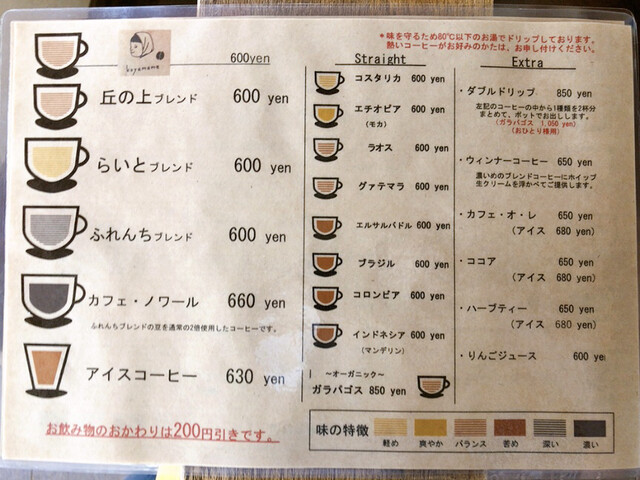 koyamame
600yen
丘の上ブレンド 600 yen
らいとブレンド 600 yen
ふれんちブレンド 600 yen
カフェ・ノワール 660 yen
ふれんちブレンドの豆を通常の2倍使用したコーヒーです。
アイスコーヒー 630 yen
お飲み物のおかわりは200円引きです。
*味を守るため80℃以下のお湯でドリップしております。
熱いコーヒーがお好みのかたは、お申し付けください。
Straight
コスタリカ 600 yen
エチオピア 600 yen
(モカ)
ラオス 600 yen
グァテマラ 600 yen
エルサルバドル 600 yen
ブラジル 600 yen
コロンビア 600 yen
インドネシア 600 yen
(マンデリン)
~オーガニック~
ガラパゴス 850 yen
Extra
・ダブルドリップ 850 yen
左記のコーヒーの中から1種類を2杯分
まとめて、ポットでお出しします。
(ガラパゴス 1,050 yen)
(おひとり様用)
・ウィンナーコーヒー 650 yen
濃いめのブレンドコーヒーにホイップ
生クリームを浮かべてご提供します。
・カフェ・オ・レ 650 yen
(アイス 680 yen)
・ココア 650 yen
(アイス 680 yen)
・ハーブティー 650 yen
(アイス 680 yen)
・りんごジュース 600 ye
味の特徴
軽め 爽やか バランス 苦め 深い 濃い